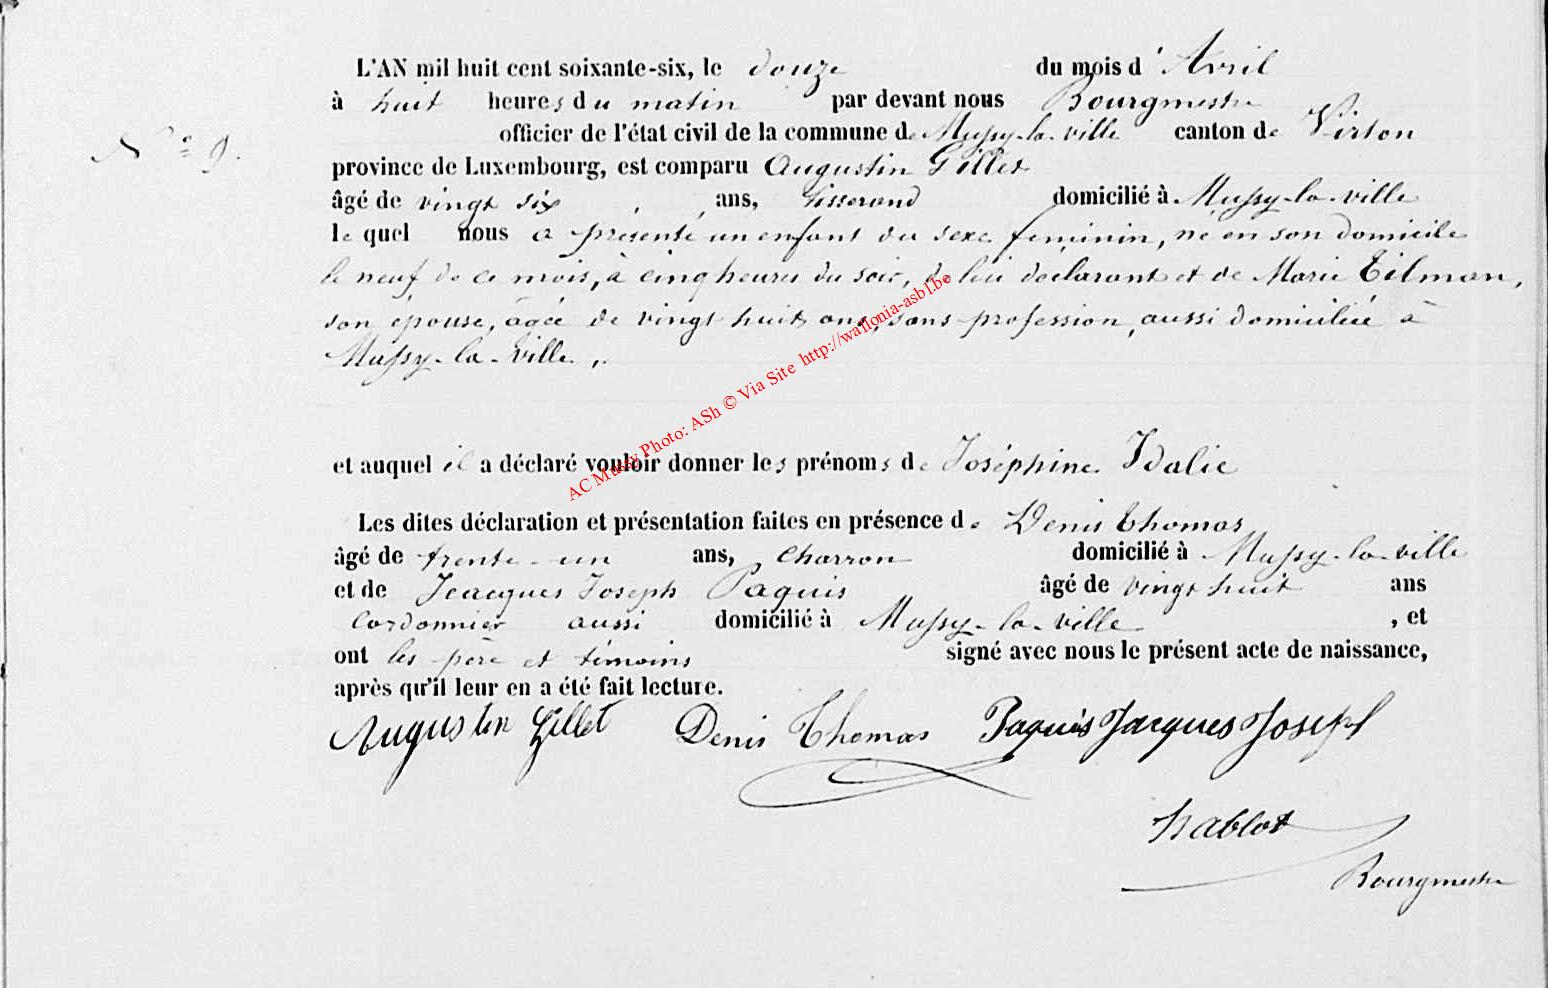 L'AN mil huit cent soixante-six, le douze du mois d'Avril
à huit heures du matin par devant nous Bourgmestre
N° 9. officier de l'état civil de la commune de Mussy-la-ville canton de Virton
province de Luxembourg, est comparu Augustin Gillet
âgé de vingt six ans, tisserand domicilié à Mussy-la-ville
le quel nous a présenté un enfant du sexe féminin, né en son domicile
le neuf de ce mois, à cinq heures du soir, de lui déclarant et de Marie Tilman,
son épouse, âgée de vingt huit ans, sans profession, aussi domiciliée à
Mussy-la-ville.
et auquel il a déclaré vouloir donner les prénoms de Joséphine Idalie
Les dites déclaration et présentation faites en présence de Denis Thomas
âgé de trente-un ans, charron domicilié à Mussy-la-ville
et de Jeacques Joseph Paquis âgé de vingt huit ans
cordonnier aussi domicilié à Mussy-la-ville, et
ont les père et témoins signé avec nous le présent acte de naissance,
après qu'il leur en a été fait lecture.
Augustin Gillet Denis Thomas Paquis Jacques Joseph
Hablot
Bourgmestre
AC Mussy Photo: ASh © Via Site http://wallonia-asbl.be